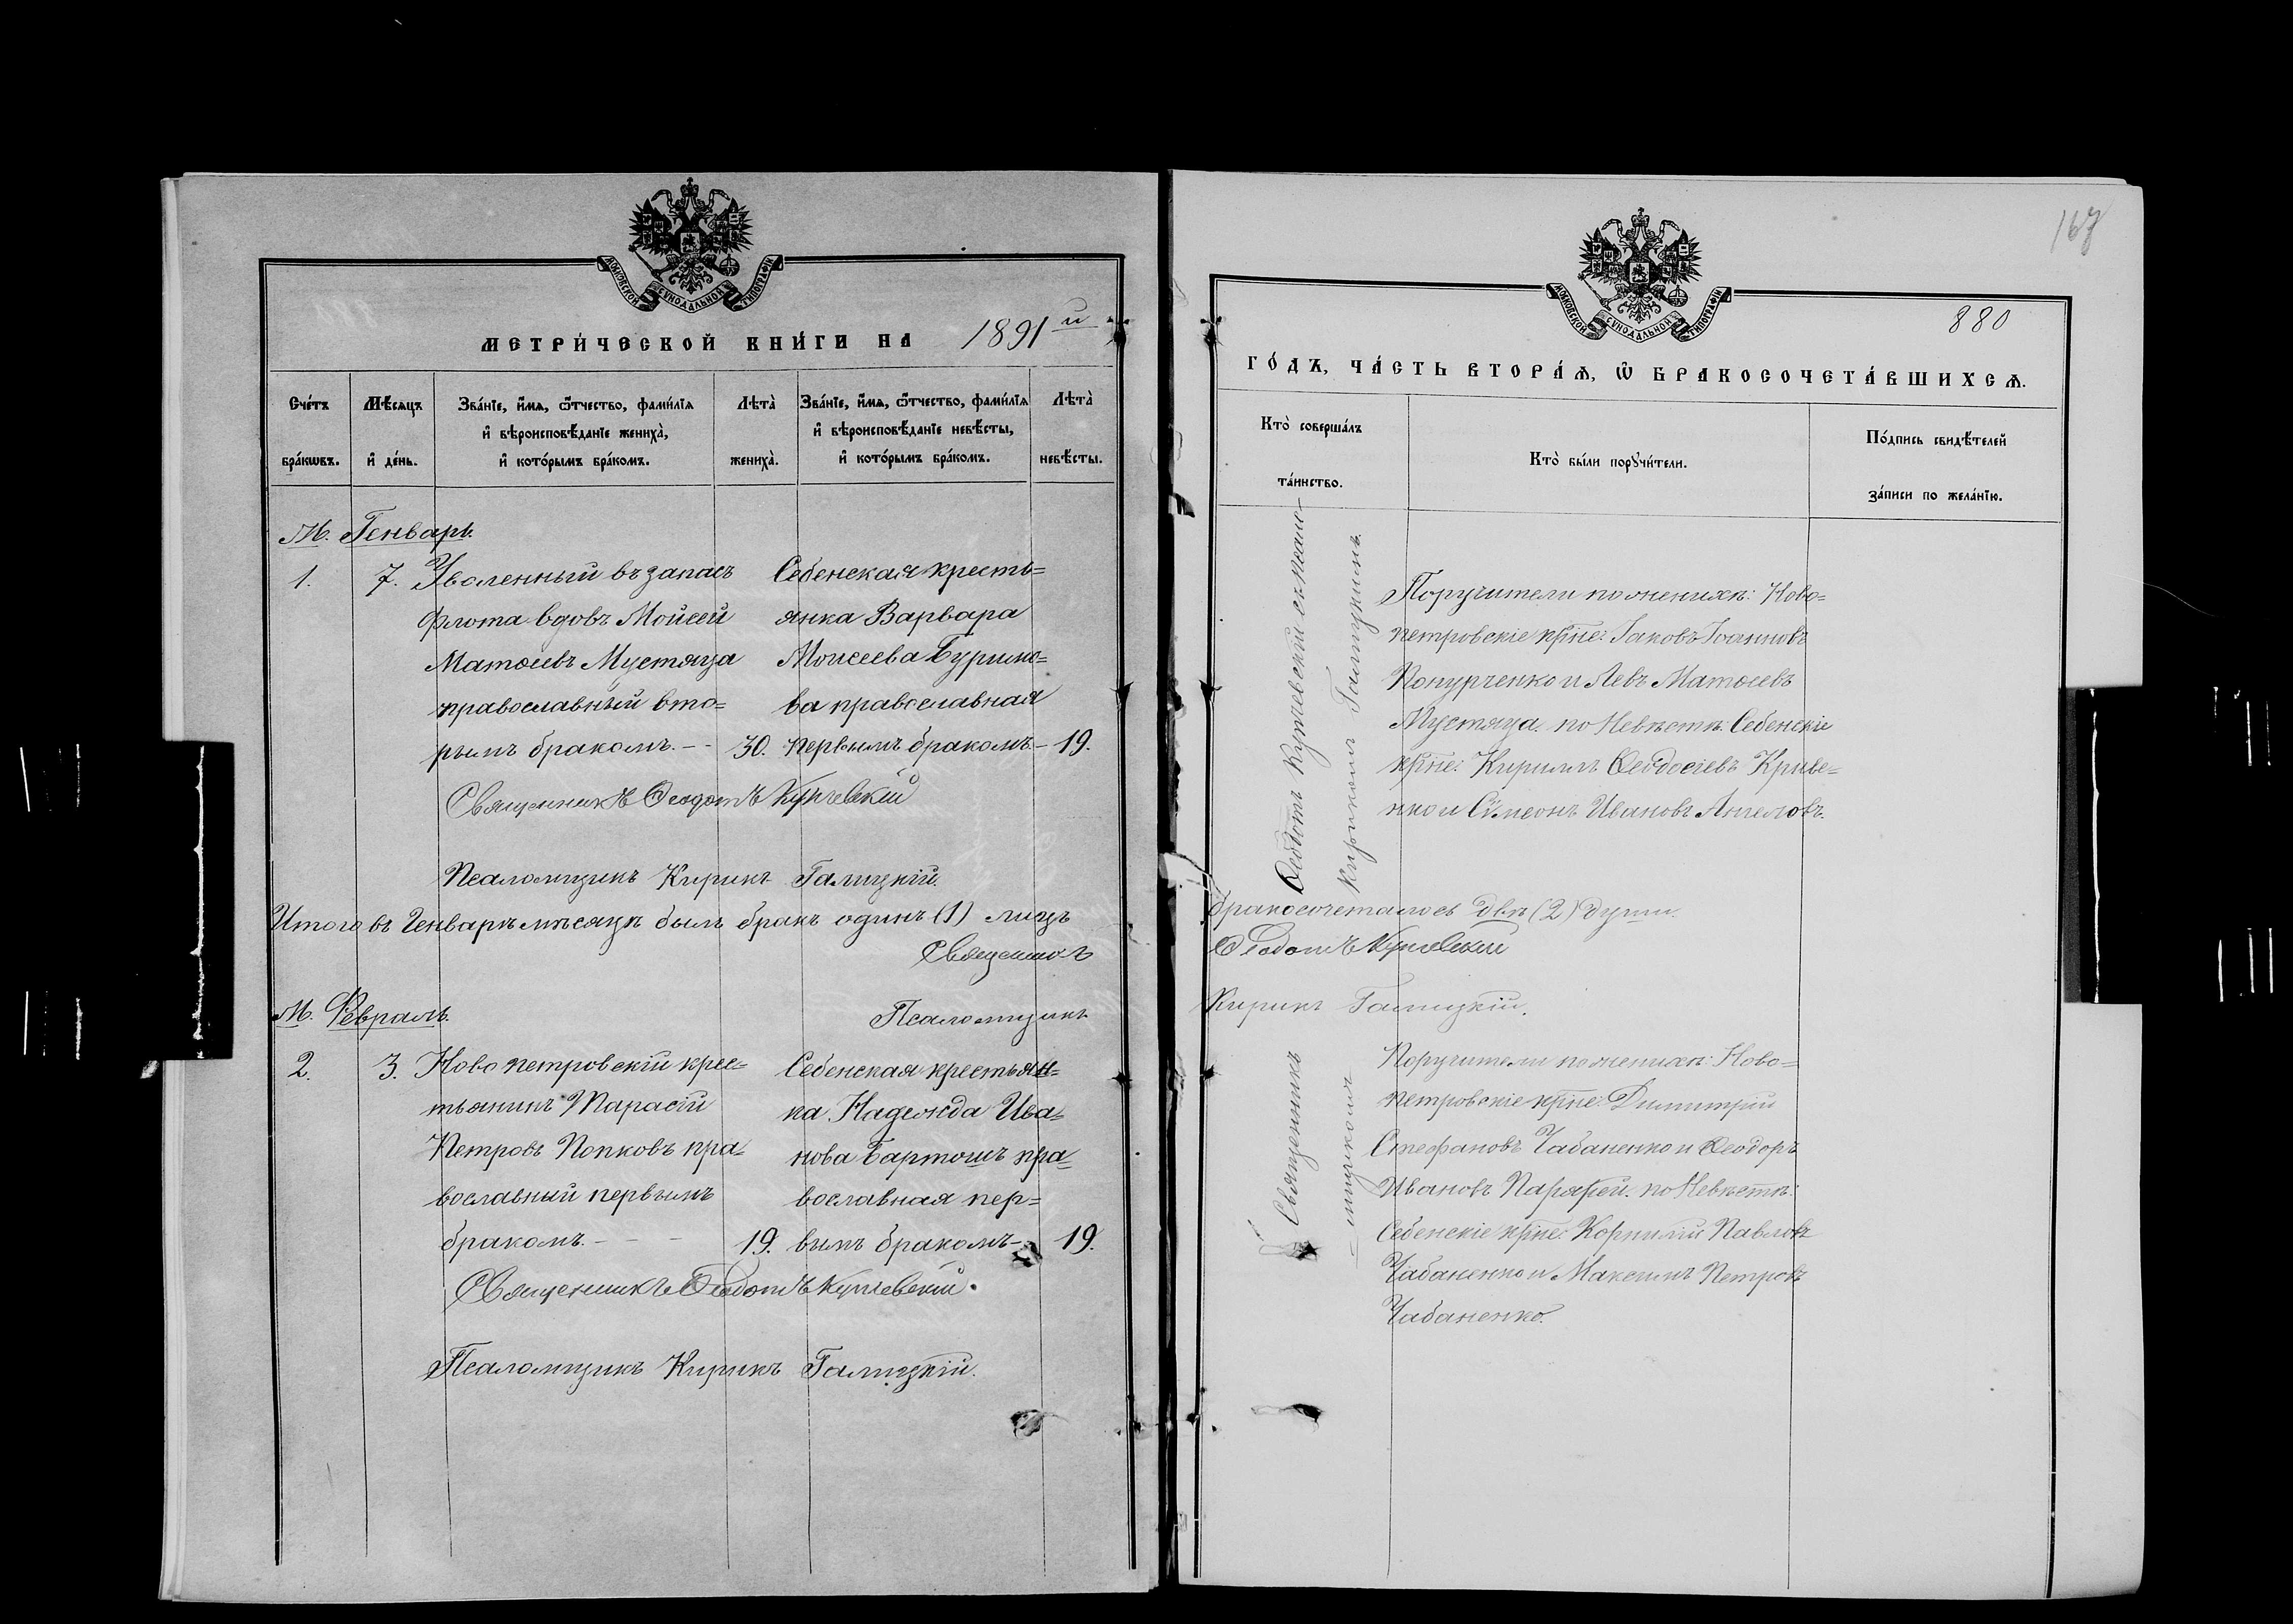 МОСКОВСКОЙ СУНОДАЛЬНОЙ ТИПОГРАФІИ
МЕТРИ́ЧЕСКОЙ КНИ́ГИ НА 1891й
Сче́тъ бра́кѡвъ.
Мѣ́сяцъ и҆ де́нь.
Зва́нїе, и҆́мѧ, ѻ҆́тчество, фами́лїѧ и҆ вѣроисповѣ́данїе жениха̀, и҆ кото́рымъ бра́комъ.
Лѣта̀ жениха̀.
Зва́нїе, и҆́мѧ, ѻ҆́тчество, фами́лїѧ и҆ вѣроисповѣ́данїе невѣ́сты, и҆ кото́рымъ бра́комъ.
Лѣта̀ невѣ́сты.
М. Генварь.
1. 7. Уволенный въ запасъ
флота вдовъ Мойсей
Матѳеевъ Мустяца
православный вто=
рымъ бракомъ. - - 30.
Себенская кресть=
янка Варвара
Моисеева Буримо=
ва православная
первымъ бракомъ - 19.
Священникъ Ѳеодотъ Купчевскій
Псаломщикъ Кирикъ Галицкій.
Итого въ Генварѣ мѣсяцѣ былъ бракъ одинъ (1) лицъ
Священникъ
Псаломщикъ
М. Февраль.
2. 3. Новопетровскій крес=
тьянинъ Тарасій
Петровъ Попковъ пра=
вославный первымъ
бракомъ. - - - 19.
Себенская крестьян=
ка Надежда Ива=
нова Бартошъ пра=
вославная пер=
вымъ бракомъ - 19.
Священникъ Ѳеодотъ Купчевскій.
Псаломщикъ Кирикъ Галицкій.
167
МОСКОВСКОЙ СУНОДАЛЬНОЙ ТИПОГРАФІИ
880
ГО́ДЪ, ЧА́СТЬ ВТОРА́Ѧ, Ѡ҆ БРАКОСОЧЕТА́ВШИХСѦ.
Кто̀ соверша́лъ та́инство.
Кто̀ бы́ли порꙋчи́тели.
По́дпись свидѣ́телей за́писи по жела́нїю.
Священникъ Ѳеодотъ Купчевскій съ псало-
- мщикомъ Кирикомъ Галицкимъ.
Поручители по женихѣ: Ново=
петровскіе кр̃не: Іаковъ Іоанновъ
Попурченко и Левъ Матѳеевъ
Мустяца. по Невѣстѣ: Себенскіе
кр̃не: Кириллъ Ѳеодосіевъ Криве=
нко и Сѵмеонъ Ивановъ Ангеловъ.
бракосочеталось двѣ (2) души.
Ѳеодотъ Купчевскій
Кирикъ Галицкій.
Поручители по женихѣ: Ново=
петровскіе кр̃не: Димитрій
Стефановъ Чабаненко и Ѳеодоръ
Ивановъ Парафей. по Невѣстѣ:
Себенскіе кр̃не: Корнилій Павловъ
Чабаненко и Максимъ Петровъ
Чабаненко.